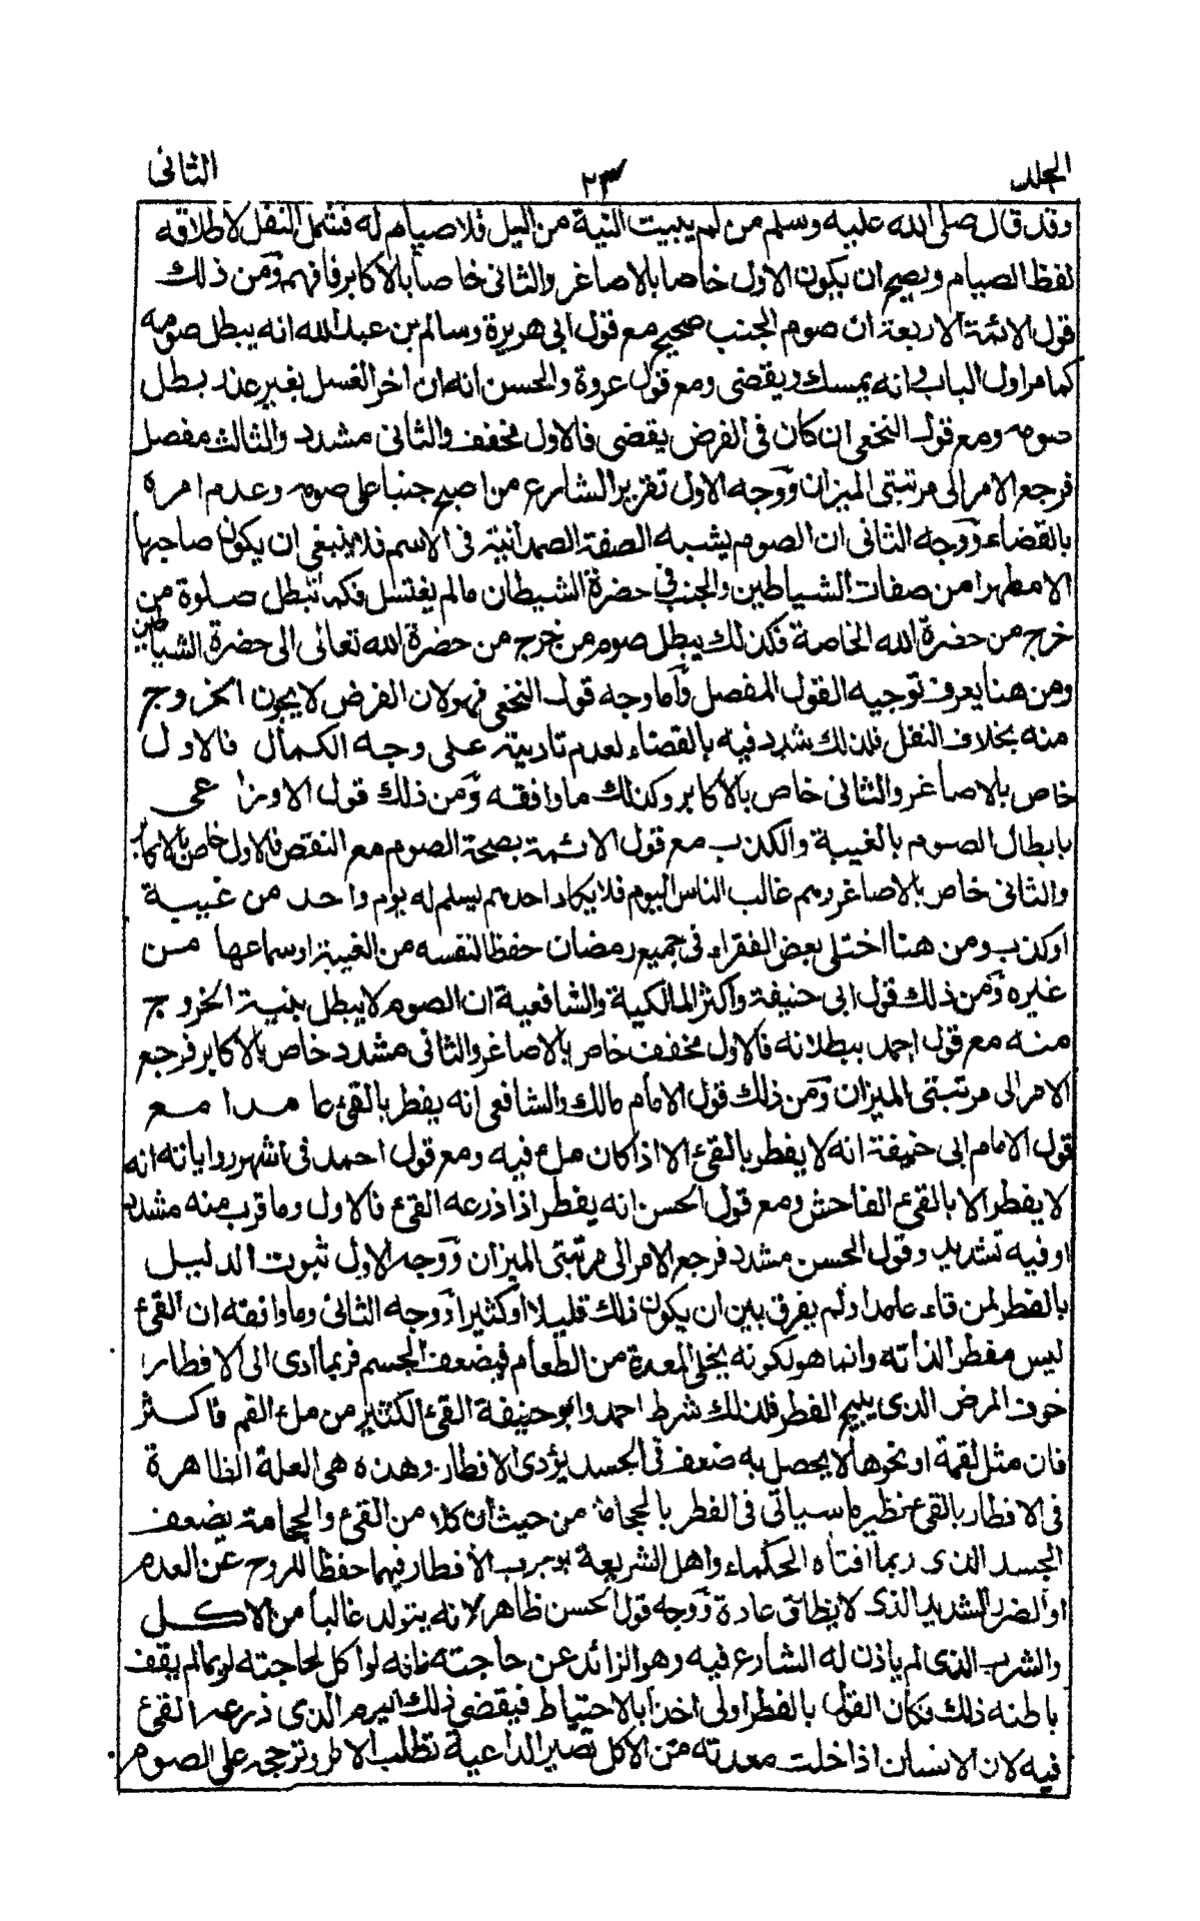 الجلد ٢٣ الثانى
وقد قال صلى الله عليه وسلم من لم يبيت النية من الليل فلا صيام له فشمل النفل لاطلاقه
لفظ الصيام ويصح ان يكون الاول خاصا بالاصاغر والثانى خاصا بالاكابر فافهم ومن ذلك
قول الائمة الاربعة ان صوم الجنب صحيح مع قول ابى هريرة وسالم بن عبد الله انه يبطل صومه
كما مر اول الباب وانه يمسك ويقضى ومع قول عروة والحسن انه ان اخر الغسل بغير عذر بطل
صومه ومع قول النخعى ان كان فى الفرض يقضى فالاول مخفف والثانى مشدد والثالث مفصل
فرجع الامر الى مرتبتى الميزان ووجه الاول تقرير الشارع من اصبح جنبا على صومه وعدم امره
بالقضاء ووجه الثانى ان الصوم يشبه الصفة الصمدانية فى الاسم فلا ينبغى ان يكون صاحبها
الا مطهرا من صفات الشياطين والجنب فى حضرة الشيطان مالم يغتسل فكما تبطل صلوة من
خرج من حضرة الله الخاصة فكذلك يبطل صوم من خرج من حضرة الله تعالى الى حضرة الشياطين
ومن هنا يعرف توجيه القول المفصل واما وجه قول النخعى فهو لان الفرض لا يجون الخروج
منه بخلاف النفل فلذلك شدد فيه بالقضاء لعدم تاديته على وجه الكمال فالاول
خاص بالاصاغر والثانى خاص بالاكابر وكذلك ما وافقه ومن ذلك قول الاوزاعى
بابطال الصوم بالغيبة والكذب مع قول الائمة بصحة الصوم مع النقص فالاول خاص بالاكابر
والثانى خاص بالاصاغر وهم غالب الناس اليوم فلا يكاد احدهم يسلم له يوم واحد من غيبة
او كذب ومن هنا اختلى بعض الفقراء فى جميع رمضان حفظا لنفسه من الغيبة او سماعها من
غيره ومن ذلك قول ابى حنيفة واكثر المالكية والشافعية ان الصوم لا يبطل بنية الخروج
منه مع قول احمد ببطلانه فالاول مخفف خاص بالاصاغر والثانى مشدد خاص بالاكابر فرجع
الامر الى مرتبتى الميزان ومن ذلك قول الامام مالك والشافعى انه يفطر بالقئ عامدا مع
قول الامام ابى حنيفة انه لا يفطر بالقئ الا اذا كان ملء فيه ومع قول احمد فى اشهر رواياته انه
لا يفطر الا بالقئ الفاحش ومع قول الحسن انه يفطر اذا ذرعه القئ فالاول وما قرب منه مشدد
او فيه تشديد وقول الحسن مشدد فرجع الامر الى مرتبتى الميزان ووجه الاول ثبوت الدليل
بالفطر لمن قاء عامدا ولم يفرق بين ان يكون ذلك قليلا او كثيرا ووجه الثانى وما وافقه ان القئ
ليس مفطرا لذاته وانما هو لكونه يخلى المعدة من الطعام فيضعف الجسم فربما ادى الى الافطار
خوف المرض الذى يبيح الفطر فلذلك شرط احمد وابو حنيفة القئ الكثير من ملء الفم فاكثر
فان مثل لقمة او نحوها لا يحصل به ضعف فى الجسد يؤدى الافطار وهذه هى العلة الظاهرة
فى الافطار بالقئ نظير ما سياتى فى الفطر بالحجامة من حيث ان كلا من القئ والحجامة يضعف
الجسد الذى ربما افتاه الحكماء واهل الشريعة بوجوب الافطار فيهما حفظا للروح عن العدم
او الضرر الشديد الذى لا يطاق عادة ووجه قول الحسن ظاهر لانه يتولد غالبا من الاكل
والشرب الذى لم ياذن له الشارع فيه وهو الزائد عن حاجته فانه لو اكل لحاجته لربما لم يقف
باطنه ذلك فكان القول بالفطر اولى اخذا بالاحتياط فيقضى ذلك اليوم الذى ذرعه القئ
فيه لان الانسان اذا خلت معدته من الاكل تصير الداعية تطلب الاكل وترجحه على الصوم